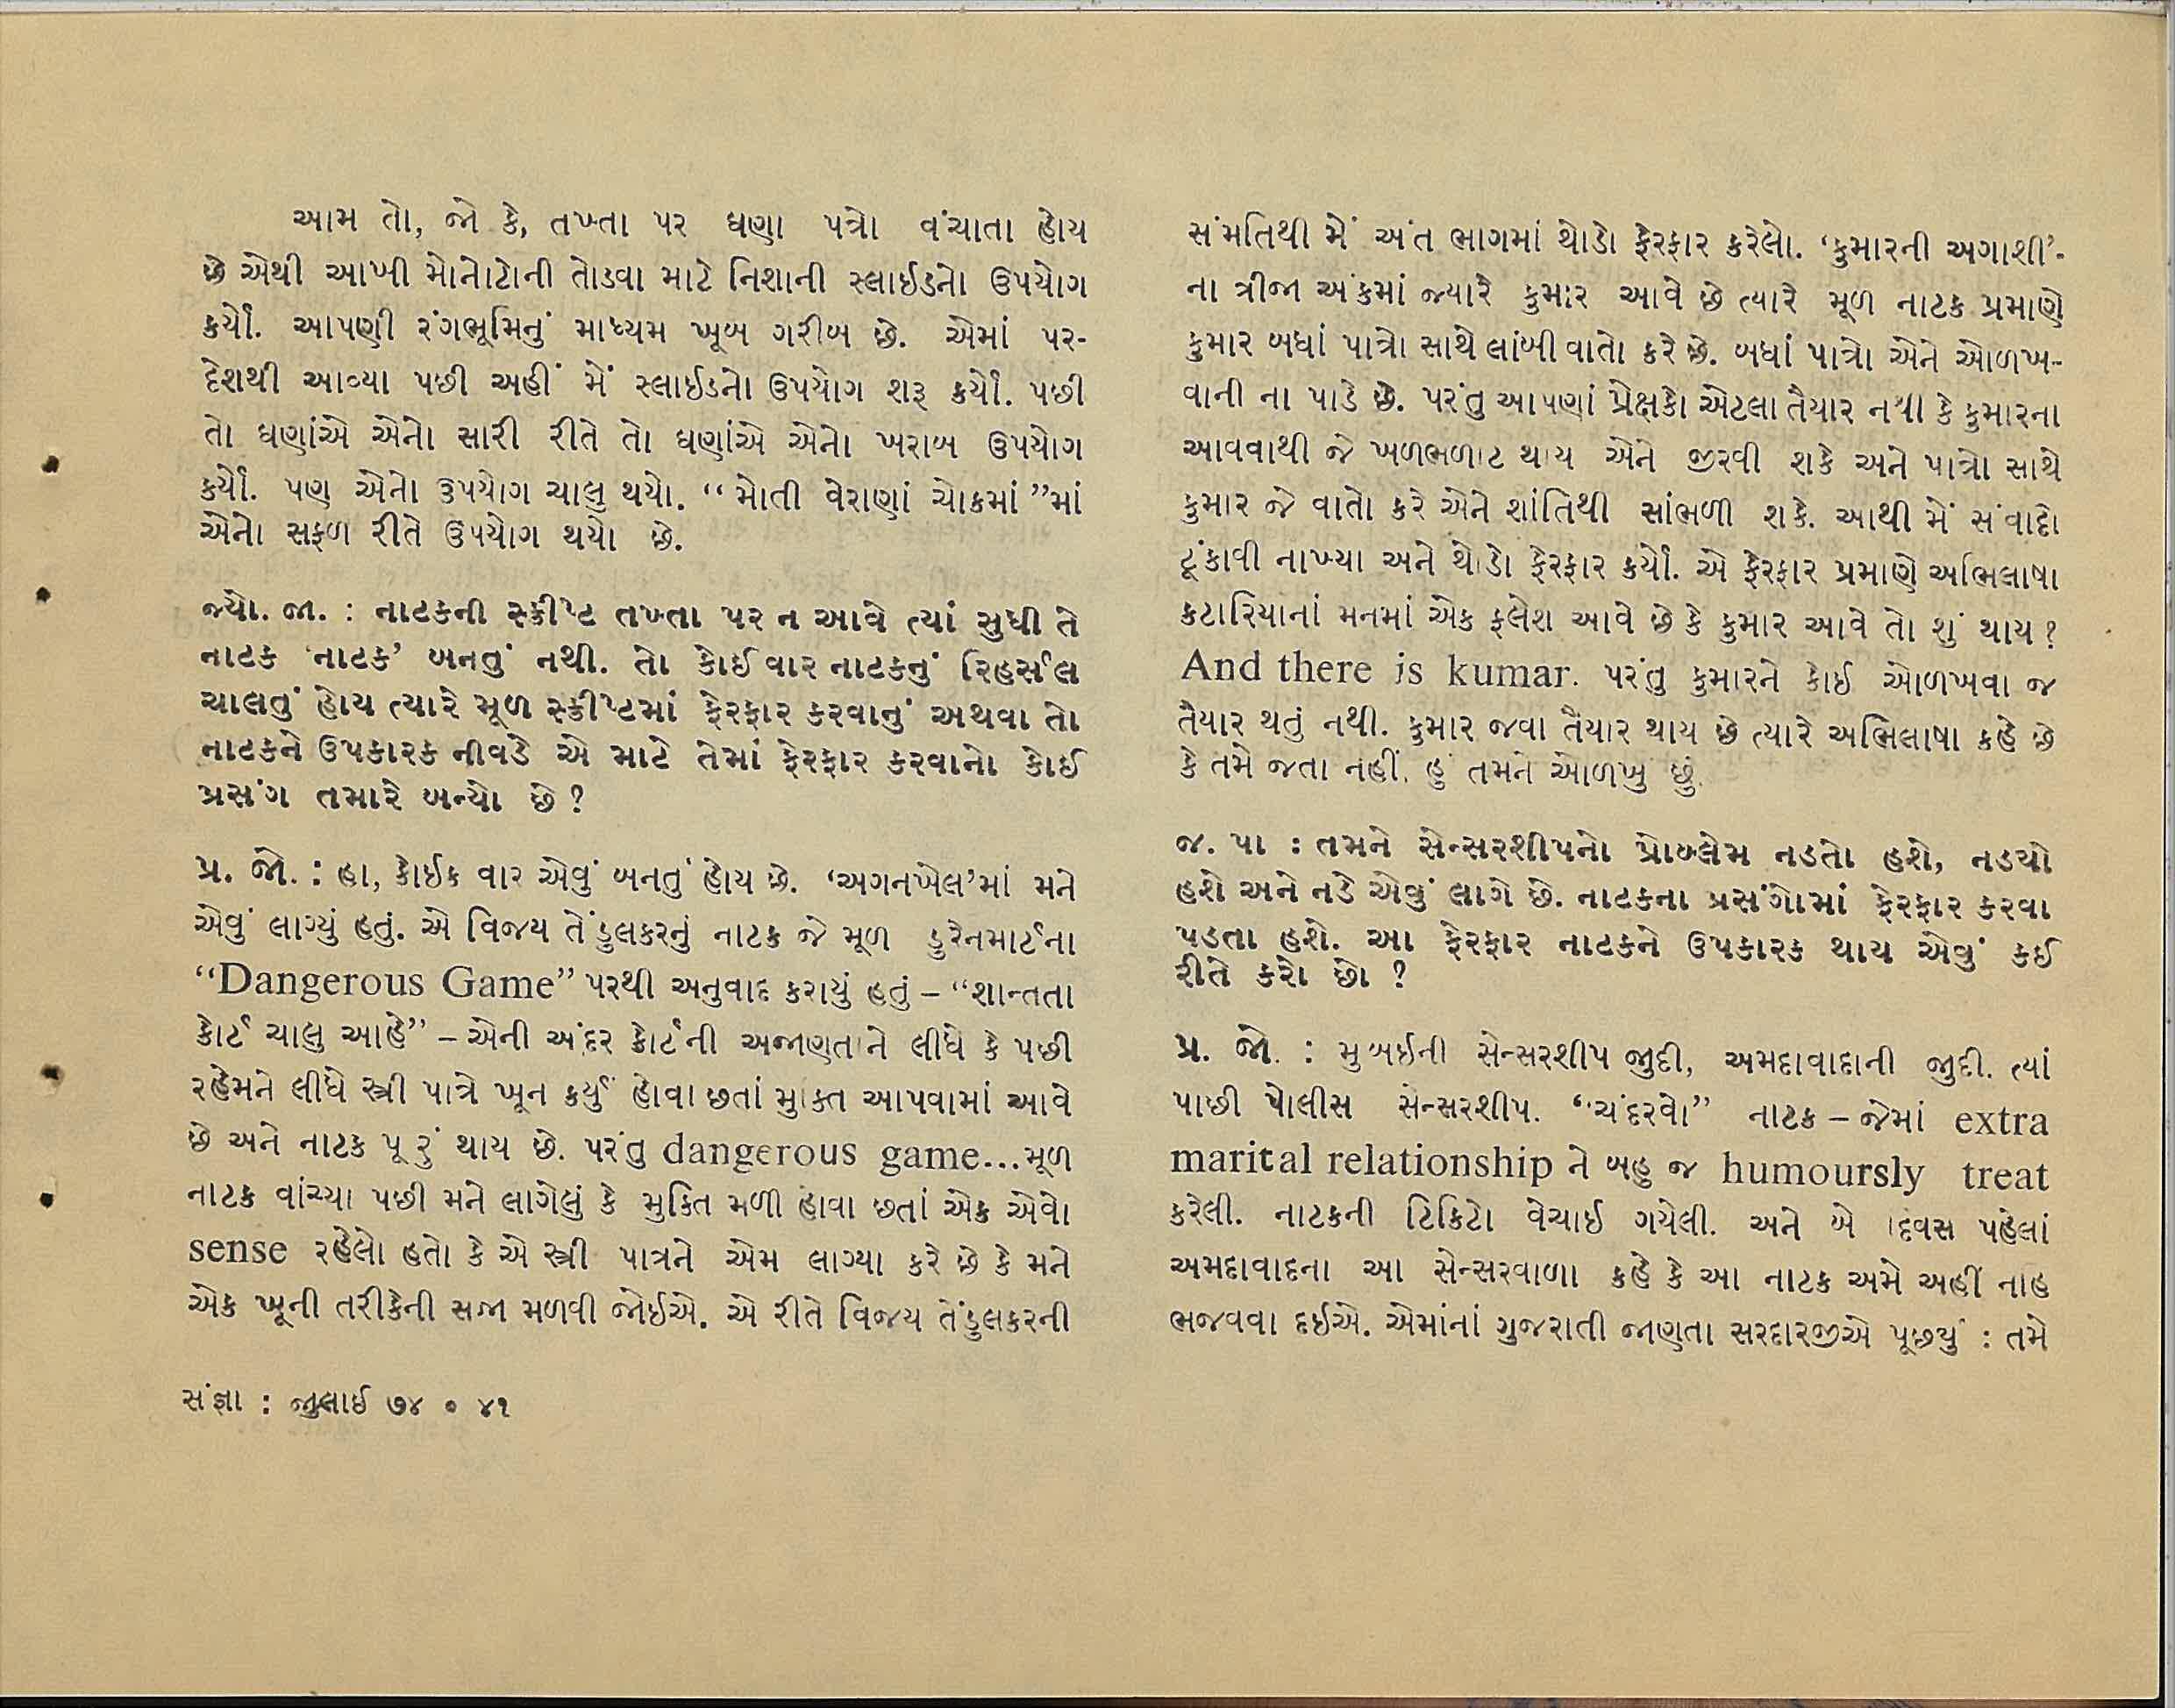 આમ તો, જો કે, તખ્તા પર ઘણા પત્રો વંચાતા હોય
છે એથી આખી મોનોટોની તોડવા માટે નિશાની સ્લાઈડનો ઉપયોગ
કર્યો. આપણી રંગભૂમિનું માધ્યમ ખૂબ ગરીબ છે. એમાં પર-
દેશથી આવ્યા પછી અહીં મેં સ્લાઈડનો ઉપયોગ શરૂ કર્યો. પછી
તો ઘણાંએ એનો સારી રીતે તો ઘણાંએ એનો ખરાબ ઉપયોગ
કર્યો. પણ એનો ઉપયોગ ચાલુ થયો. “મોતી વેરાણાં ચોકમાં”માં
એનો સફળ રીતે ઉપયોગ થયો છે.
જ્યો. જા. : નાટકની સ્ક્રીપ્ટ તખ્તા પર ન આવે ત્યાં સુધી તે
નાટક ‘નાટક’ બનતું નથી. તો કોઈ વાર નાટકનું રિહર્સલ
ચાલતું હોય ત્યારે મૂળ સ્ક્રીપ્ટમાં ફેરફાર કરવાનું અથવા તો
નાટકને ઉપકારક નીવડે એ માટે તેમાં ફેરફાર કરવાનો કોઈ
પ્રસંગ તમારે બન્યો છે ?
પ્ર. જો. : હા, કોઈક વાર એવું બનતું હોય છે. ‘અગનખેલ’માં મને
એવું લાગ્યું હતું. એ વિજય તેંડુલકરનું નાટક જે મૂળ ડુરેનમાર્ટના
“Dangerous Game” પરથી અનુવાદ કરાયું હતું – “શાન્તતા
કોર્ટ ચાલુ આહે” – એની અંદર કોર્ટની અજાણતાને લીધે કે પછી
રહેમને લીધે સ્ત્રી પાત્રે ખૂન કર્યું હોવા છતાં મુક્તિ આપવામાં આવે
છે અને નાટક પૂરું થાય છે. પરંતુ dangerous game...મૂળ
નાટક વાંચ્યા પછી મને લાગેલું કે મુક્તિ મળી હોવા છતાં એક એવો
sense રહેલો હતો કે એ સ્ત્રી પાત્રને એમ લાગ્યા કરે છે કે મને
એક ખૂની તરીકેની સજા મળવી જોઈએ. એ રીતે વિજય તેંડુલકરની
સંજ્ઞા : જુલાઈ ૭૪ ૦ ૪૧
સંમતિથી મેં અંત ભાગમાં થોડો ફેરફાર કરેલો. ‘કુમારની અગાશી’-
ના ત્રીજા અંકમાં જ્યારે કુમાર આવે છે ત્યારે મૂળ નાટક પ્રમાણે
કુમાર બધાં પાત્રો સાથે લાંબી વાતો કરે છે. બધાં પાત્રો એને ઓળખ-
વાની ના પાડે છે. પરંતુ આપણાં પ્રેક્ષકો એટલા તૈયાર નથી કે કુમારના
આવવાથી જે ખળભળાટ થાય એને જીરવી શકે અને પાત્રો સાથે
કુમાર જે વાતો કરે એને શાંતિથી સાંભળી શકે. આથી મેં સંવાદો
ટૂંકાવી નાખ્યા અને થોડો ફેરફાર કર્યો. એ ફેરફાર પ્રમાણે અભિલાષા
કટારિયાનાં મનમાં એક ફ્લેશ આવે છે કે કુમાર આવે તો શું થાય ?
And there is kumar. પરંતુ કુમારને કોઈ ઓળખવા જ
તૈયાર થતું નથી. કુમાર જવા તૈયાર થાય છે ત્યારે અભિલાષા કહે છે
કે તમે જતા નહીં. હું તમને ઓળખું છું.
જ. પા : તમને સેન્સરશીપનો પ્રોબ્લેમ નડતો હશે, નડચો
હશે અને નડે એવું લાગે છે. નાટકના પ્રસંગોમાં ફેરફાર કરવા
પડતા હશે. આ ફેરફાર નાટકને ઉપકારક થાય એવું કઈ
રીતે કરો છો ?
પ્ર. જો. : મુંબઈની સેન્સરશીપ જુદી, અમદાવાદાની જુદી. ત્યાં
પાછી પોલીસ સેન્સરશીપ. “ચંદરવો” નાટક – જેમાં extra
marital relationship ને બહુ જ humoursly treat
કરેલી. નાટકની ટિકિટો વેચાઈ ગયેલી. અને બે દિવસ પહેલાં
અમદાવાદના આ સેન્સરવાળા કહે કે આ નાટક અમે અહીં નહિ
ભજવવા દઈએ. એમાંનાં ગુજરાતી જાણતા સરદારજીએ પૂછ્યું : તમે